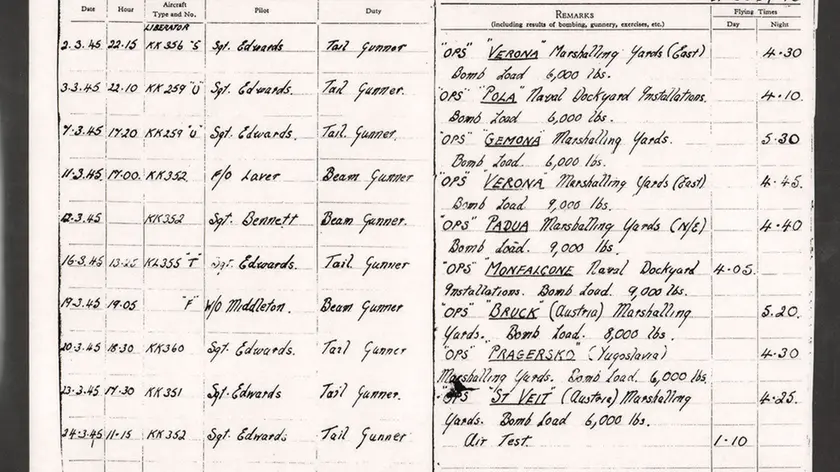 Date Hour Aircraft Type and No. Pilot Duty REMARKS (including results of bombing, gunnery, exercises, etc.) Flying Times Day Night
LIBERATOR
2.3.45 22.15 KK356 "S" Sgt. Edwards Tail Gunner "OPS" "VERONA" Marshalling Yards (East) 4.30
Bomb Load 6,000 lbs.
3.3.45 22.10 KK259 "U" Sgt. Edwards. Tail Gunner. "OPS" "POLA" Naval Dockyard Installations. 4.10
Bomb Load 6,000 lbs.
7.3.45 17.20 KK259 "U" Sgt. Edwards. Tail. Gunner. "OPS" "GEMONA" Marshalling Yards. 5.30
Bomb Load. 6,000 lbs.
11.3.45. 17.00. KK352 F/O Laver Beam Gunner "OPS" "VERONA" Marshalling Yards (East) 4.45.
Bomb Load 9,000 lbs.
12.3.45 KK352 Sgt. Bennett Beam Gunner. "OPS" "PADUA" Marshalling Yards (N/E) 4.40
Bomb Load. 9,000 lbs.
16.3.45 KL355 "T" Sgt. Edwards. Tail Gunner. "OPS" "MONFALCONE" Naval Dockyard 4.05.
Installations. Bomb Load. 9,000 lbs.
19.3.45 19.05 "F" W/O Middleton. Beam Gunner "OPS" "BRUCK" (Austria) Marshalling 5.20.
Yards. Bomb Load. 8,000 lbs.
20.3.45 18.30 KK360 Sgt. Edwards. Tail Gunner "OPS" "PRAGERSKO" (Yugoslavia) 4.30
Marshalling Yards. Bomb Load. 6,000 lbs.
23.3.45 17.30 KK351 Sgt. Edwards Tail Gunner. "OPS" "ST VEIT" (Austria) Marshalling 4.25.
Yards. Bomb Load 6,000 lbs.
24.3.45 11.15 KK352 Sgt. Edwards Tail Gunner Air Test. 1.10